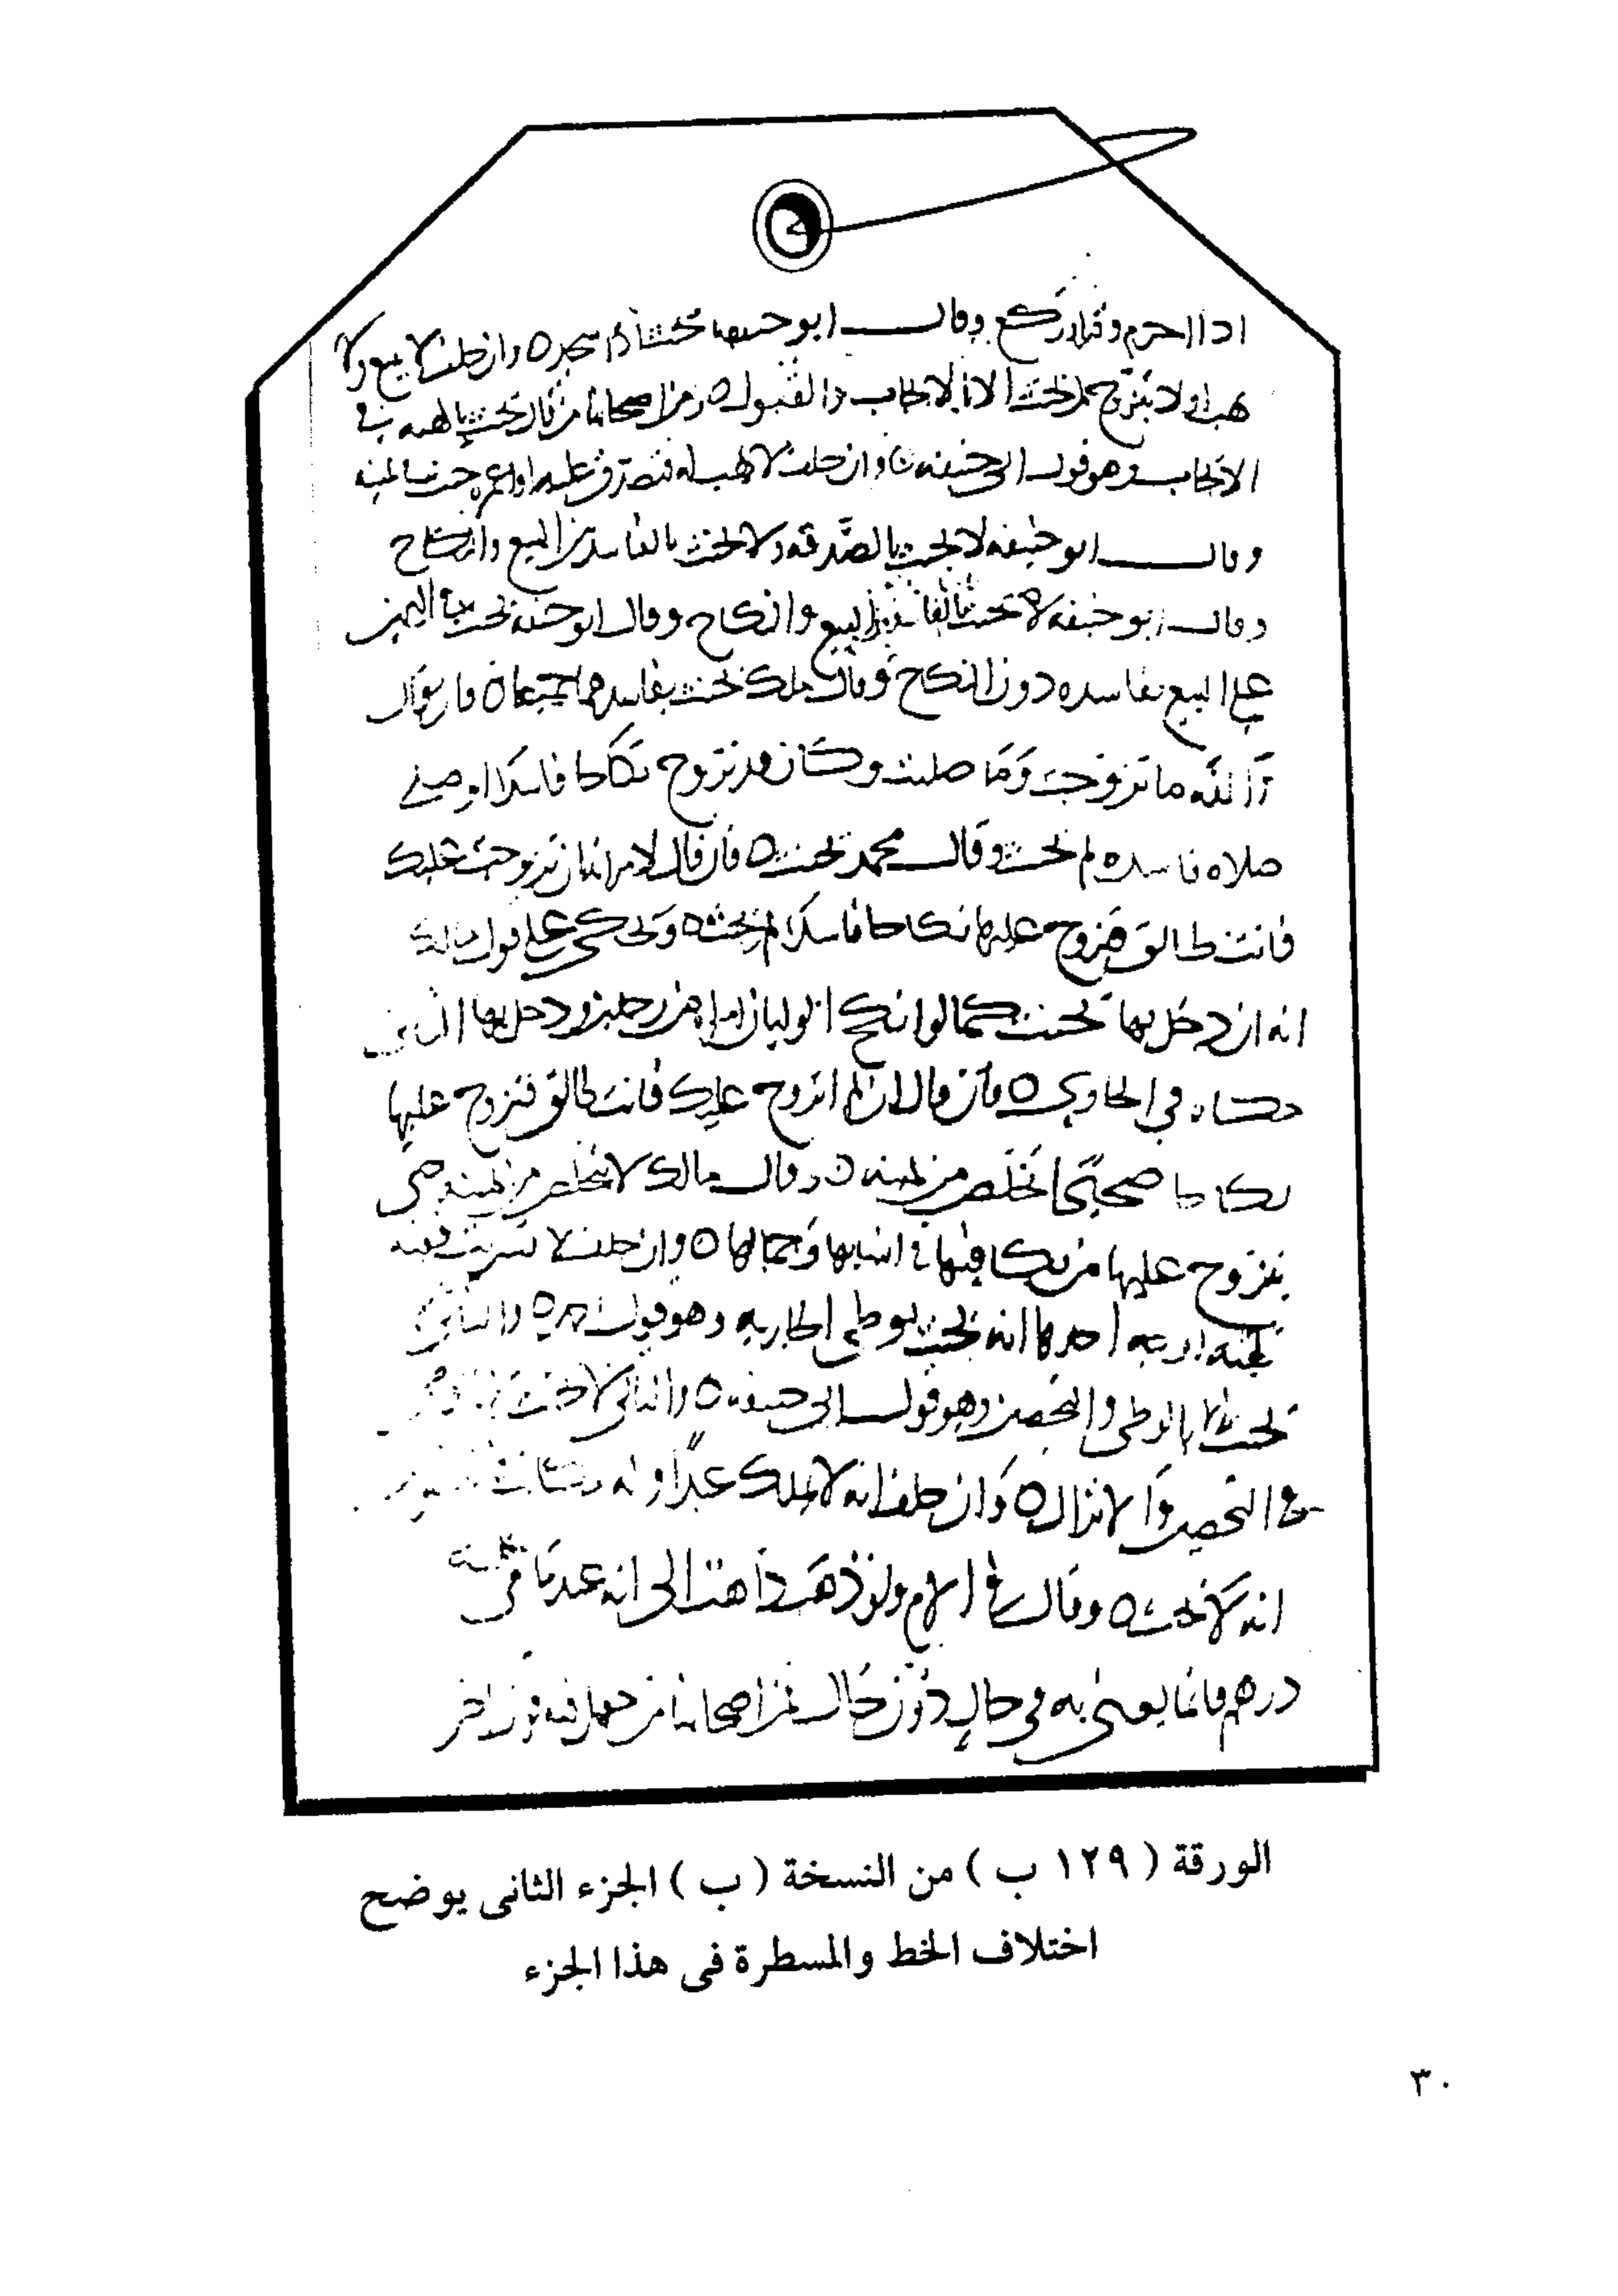 اذا احرم وقيل ركع وقالــ ابو حنيفه تحنث اذا سجد ه وان حلف لا يبيع ولا
يهب او لا يتزوج لم يحنث الا بالايجاب والقبول ه ومن اصحابنا من قال يحنث بالهبه في
الايجاب وهو قولــ ابي حنيفه ه وان حلف لا يهب له فتصدق عليه او اعمره حنث في يمينه
وقالــ ابو حنيفه لا يحنث بالصدقه ولا يحنث بالفاسد من البيع والنكاح
وقالــ ابو حنيفه لا يحنث بالفاسد من البيع والنكاح وقال ابو حنيفه يحنث في اليمين
على البيع بفاسده دون النكاح وقال ملك يحنث بفاسدهما جميعا ه فان قال
والله ما تزوجت وما صليت وكان قد تزوج نكاحا فاسدا او صلى
صلاه فاسده لم يحنث وقالــ محمد يحنث ه فان قال لامراته ان تزوجت عليك
فانت طالق فتزوج عليها نكاحا فاسدا لم يحنث ه وحكي على قول مالك
انه ان دخل بها يحنث كما لو انكح الوليان امراه من رجلين ودخل بها الثاني
حكاه في الحاوي ه فان قال ان لم اتزوج عليك فانت طالق فتزوج عليها
نكاحا صحيحا تخلص من يمينه ه وقالــ مالك لا يتخلص من يمينه حتى
يتزوج عليها من يكافيها في نسبها وجمالها ه وان حلف لا تسريت ففيه
ثلثه اوجه احدها انه يحنث بوطي الجاريه وهو قولــ احمد ه والثاني
يحنث بالوطي والتحصين وهو قولــ ابي حنيفه ه والثالث لا يحنث
التحصين والانزال ه وان حلف انه لا يملك عبدا وله مكاتب
انه لا يحنث ه وقالــ في الام ولو ذهب ذاهب الى انه عبد ما بقي عليه
درهم فانما يعني به في حال دون حال فمن اصحابنا من جعل فيه قولا اخر
الورقة ( ١٢٩ ب ) من النسخة ( ب ) الجزء الثانى يوضح
اختلاف الخط والمسطرة فى هذا الجزء
٣٠